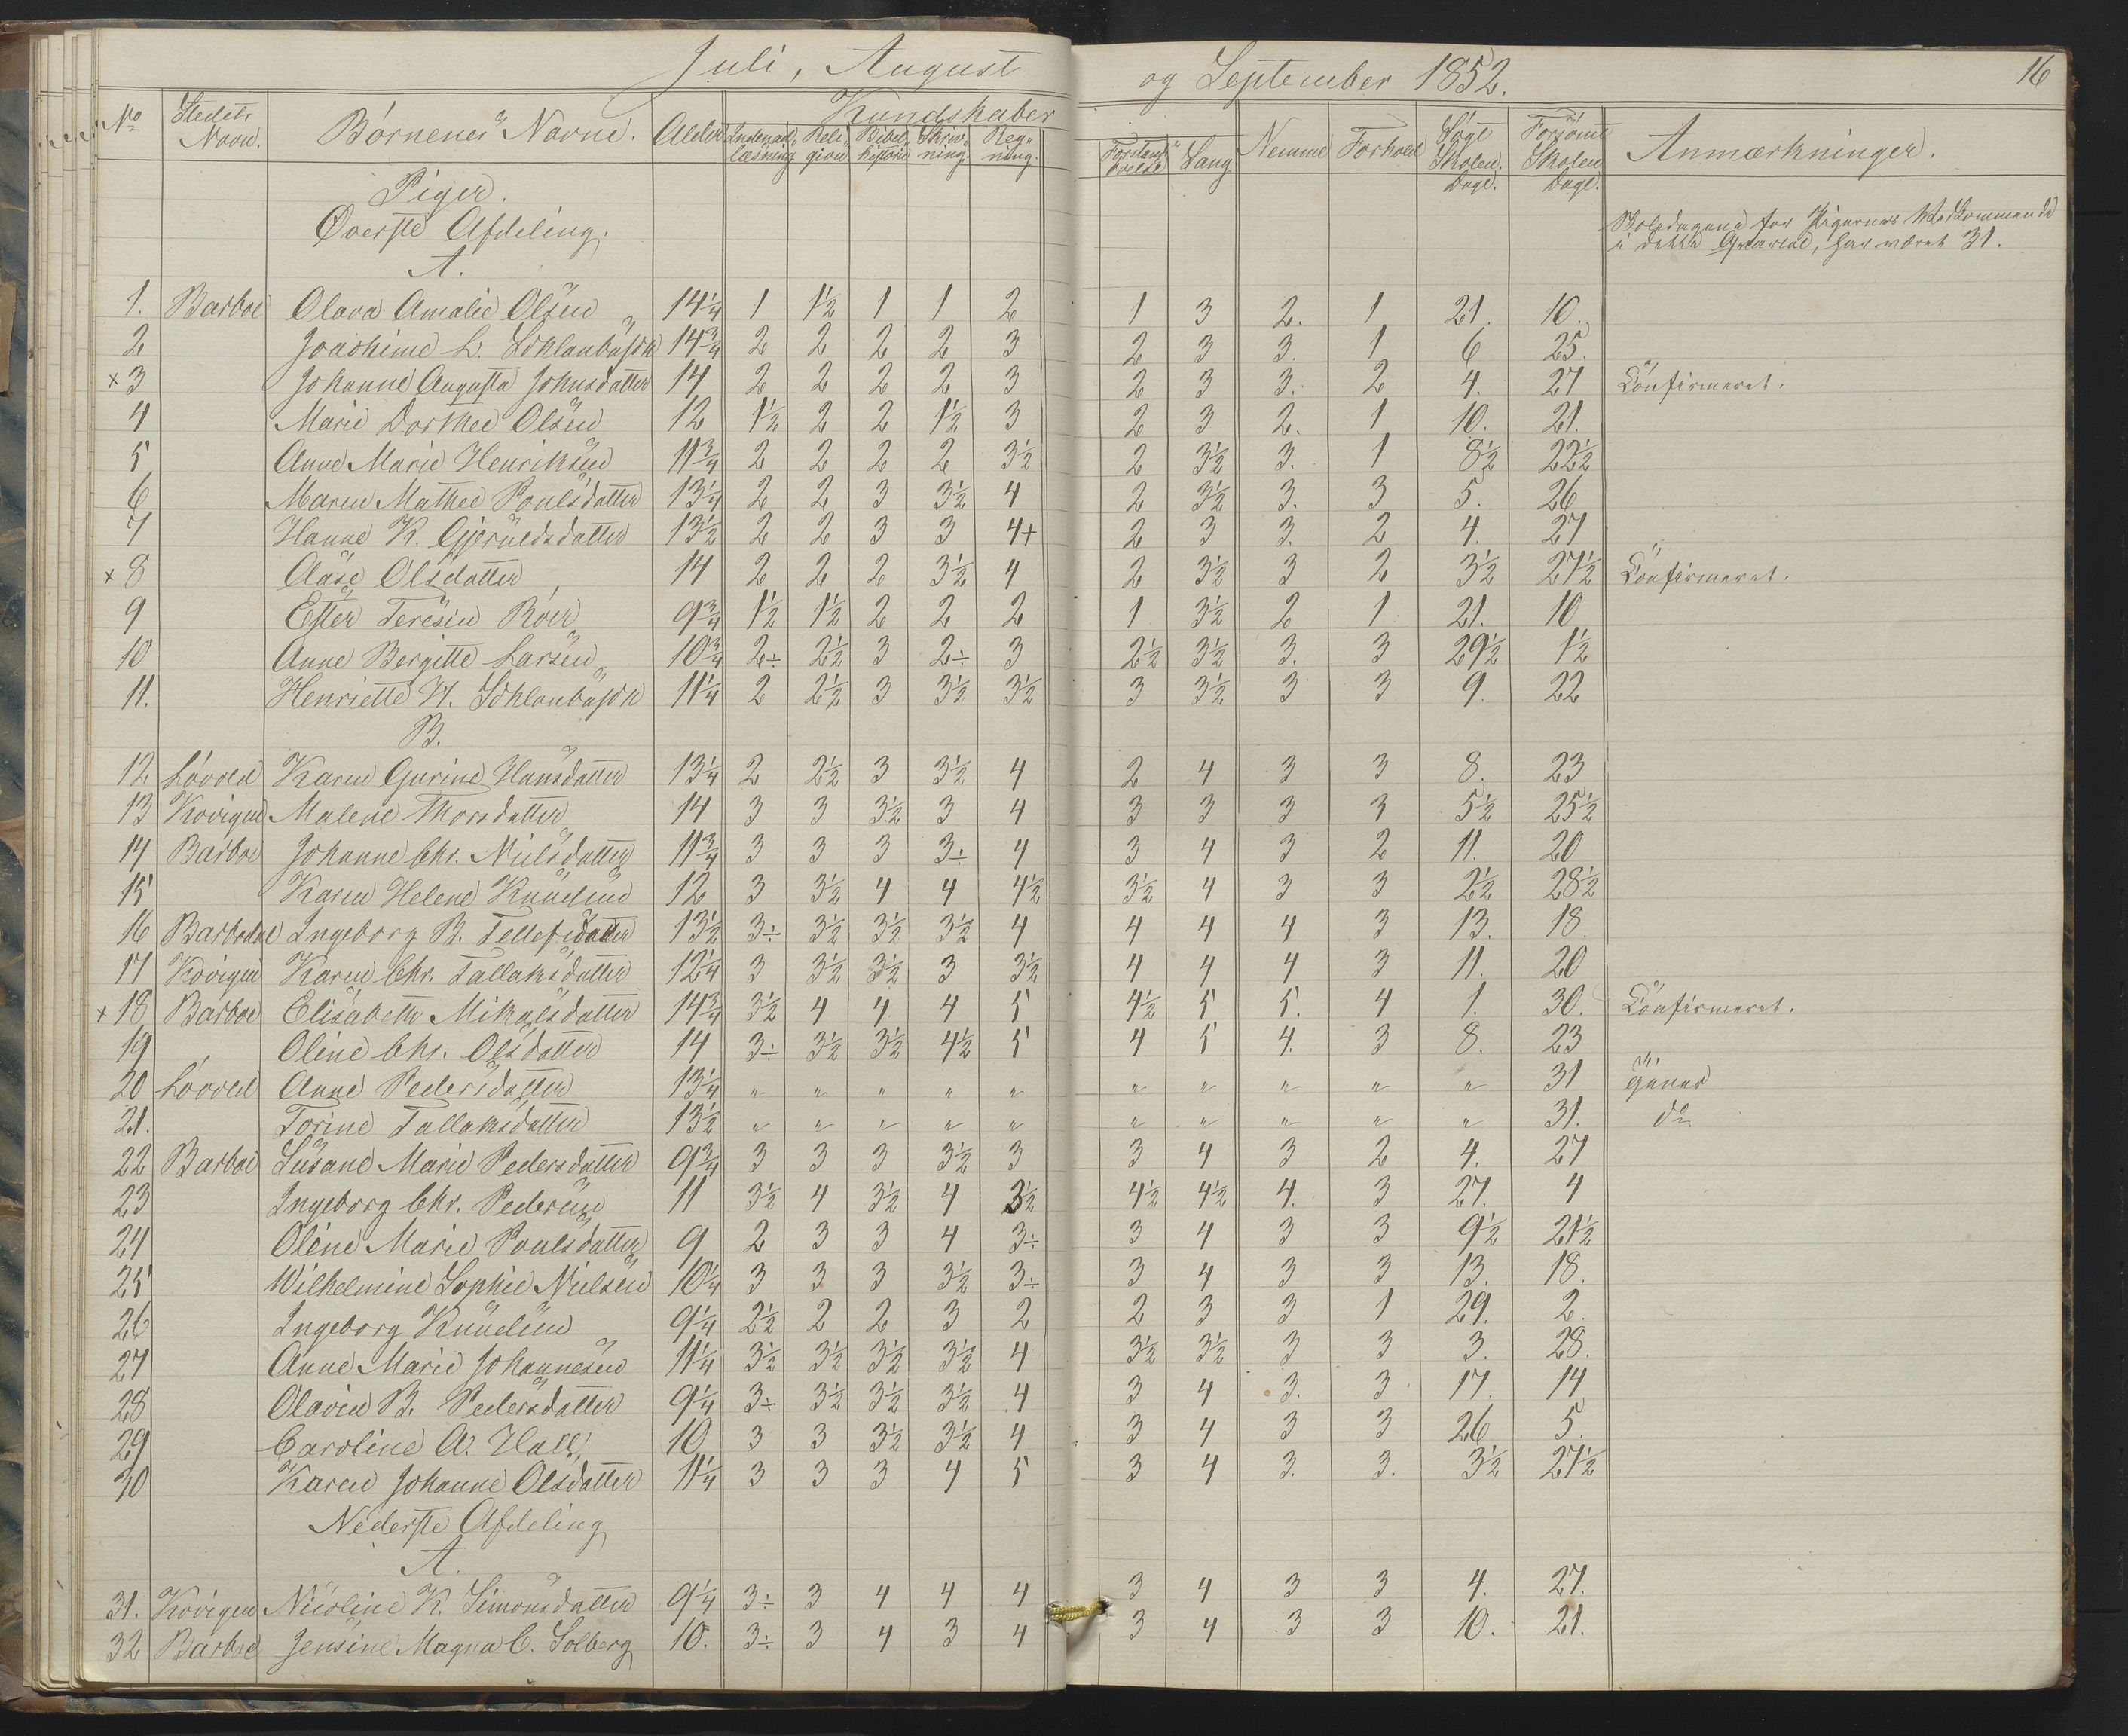 Juli, August og September 1852. 16
No Stedets Navn. Børnenes Navne. Alder Kundskaber Forstands øvelse Sang Nemme Forhold Søgt Skolen Dage. Forsömt Skolen Dage. Anmærkninger.
Indenad læsning Reli- gion Bibel historie Skriv- ning. Reg- ning.
Piger.
Øverste Afdeling.
A.
Skoledagene for Pigernes Vedkommende
i dette Qvartal, har været 31.
1. Barboe Olava Amalie Olsen 14¼ 1 1½ 1 1 2 1 3 2. 1 21. 10.
2 Joachime L. Schlanbusch 14¾ 2 2 2 2 3 2 3 3. 1 6 25.
x 3 Johanne Augusta Johnsdatter 14 2 2 2 2 3 2 3 3. 2 4. 27 Confirmeret.
4 Marie Dorthee Olsen 12 1½ 2 2 1½ 3 2 3 2. 1 10. 21.
5 Anne Marie Henriksen 11¾ 2 2 2 2 3½ 2 3½ 3. 1 8½ 22½
6 Maren Mathee Poulsdatter 13¼ 2 2 3 3½ 4 2 3½ 3. 3 5. 26
7 Hanne K. Gjeruldsdatter 13½ 2 2 3 3 4+ 2 3 3. 2 4. 27
x 8 Aase Olsdatter 14 2 2 2 3½ 4 2 3½ 3 2 3½ 27½ Confirmeret.
9 Ester Teresia Röer 9¾ 1½ 1½ 2 2 2 1 3½ 2 1 21. 10
10 Anne Bergitte Larsen 10¾ 2÷ 2½ 3 2÷ 3 2½ 3½ 3. 3 29½ 1½
11. Henriette W. Schlanbusch 11¼ 2 2½ 3 3½ 3½ 3 3½ 3 3 9. 22
B.
12 Løvold Karen Gurine Hansdatter 13¼ 2 2½ 3 3½ 4 2 4 3 3 8. 23
13 Kovigen Malene Thorsdatter 14 3 3 3½ 3 4 3 3 3 3 5½ 25½
14 Barboe Johanne Chr. Nielsdatter 11¾ 3 3 3 3÷ 4 3 4 3 2 11. 20
15 Karen Helene Knudsen 12 3 3½ 4 4 4½ 3½ 4 3 3 2½ 28½
16 Barbodal Ingeborg B. Tellefsdatter 13½ 3÷ 3½ 3½ 3½ 4 4 4 4 3 13. 18.
17 Kovigen Karen Chr. Tallaksdatter 12¼ 3 3½ 3½ 3 3½ 4 4 4 3 11. 20
x 18 Barboe Elisabeth Mikalsdatter 14¾ 3½ 4 4 4 5 4½ 5 5. 4 1. 30. Confirmeret.
19 Oline Chr. Olsdatter 14 3÷ 3½ 3½ 4½ 5 4 5 4. 3 8. 23
20 Løvold Anne Pedersdatter 13¼ " " " " " " " " " " 31
21. Torine Tallaksdatter 13½ " " " " " " " " " " 31. do
22 Barboe Susane Marie Pedersdatter 9¾ 3 3 3 3½ 3 3 4 3 2 4. 27
23 Ingeborg Chr. Pedersen 11 3½ 4 3½ 4 3½ 4½ 4½ 4. 3 27. 4
24 Oline Marie Poulsdatter 9 2 3 3 4 3÷ 3 4 3 3 9½ 21½
25 Wilhelmine Sophie Nielsen 10¼ 3 3 3 3½ 3÷ 3 4 3 3 13. 18.
26 Ingeborg Knudsen 9¼ 2½ 2 2 3 2 2 3 3 1 29. 2.
27 Anne Marie Johannesen 11¼ 3½ 3½ 3½ 3½ 4 3½ 3½ 3 3 3. 28.
28 Olavia B. Pedersdatter 9¼ 3÷ 3½ 3½ 3½ 4 3 4 3. 3 17. 14
29 Caroline A. Hall 10 3 3 3½ 3½ 4 3 4 3 3 26 5.
30 Karen Johanne Olsdatter 11¼ 3 3 3 4 5 3 4 3. 3. 3½ 27½
Nederste Afdeling
A.
31. Kovigen Nicoline K. Simonsdatter 9¼ 3÷ 3 4 4 4 3 4 3 3 4. 27.
32 Barboe Jensine Magna C. Solberg 10. 3÷ 3 4 3 4 3 4 3 3 10. 21.